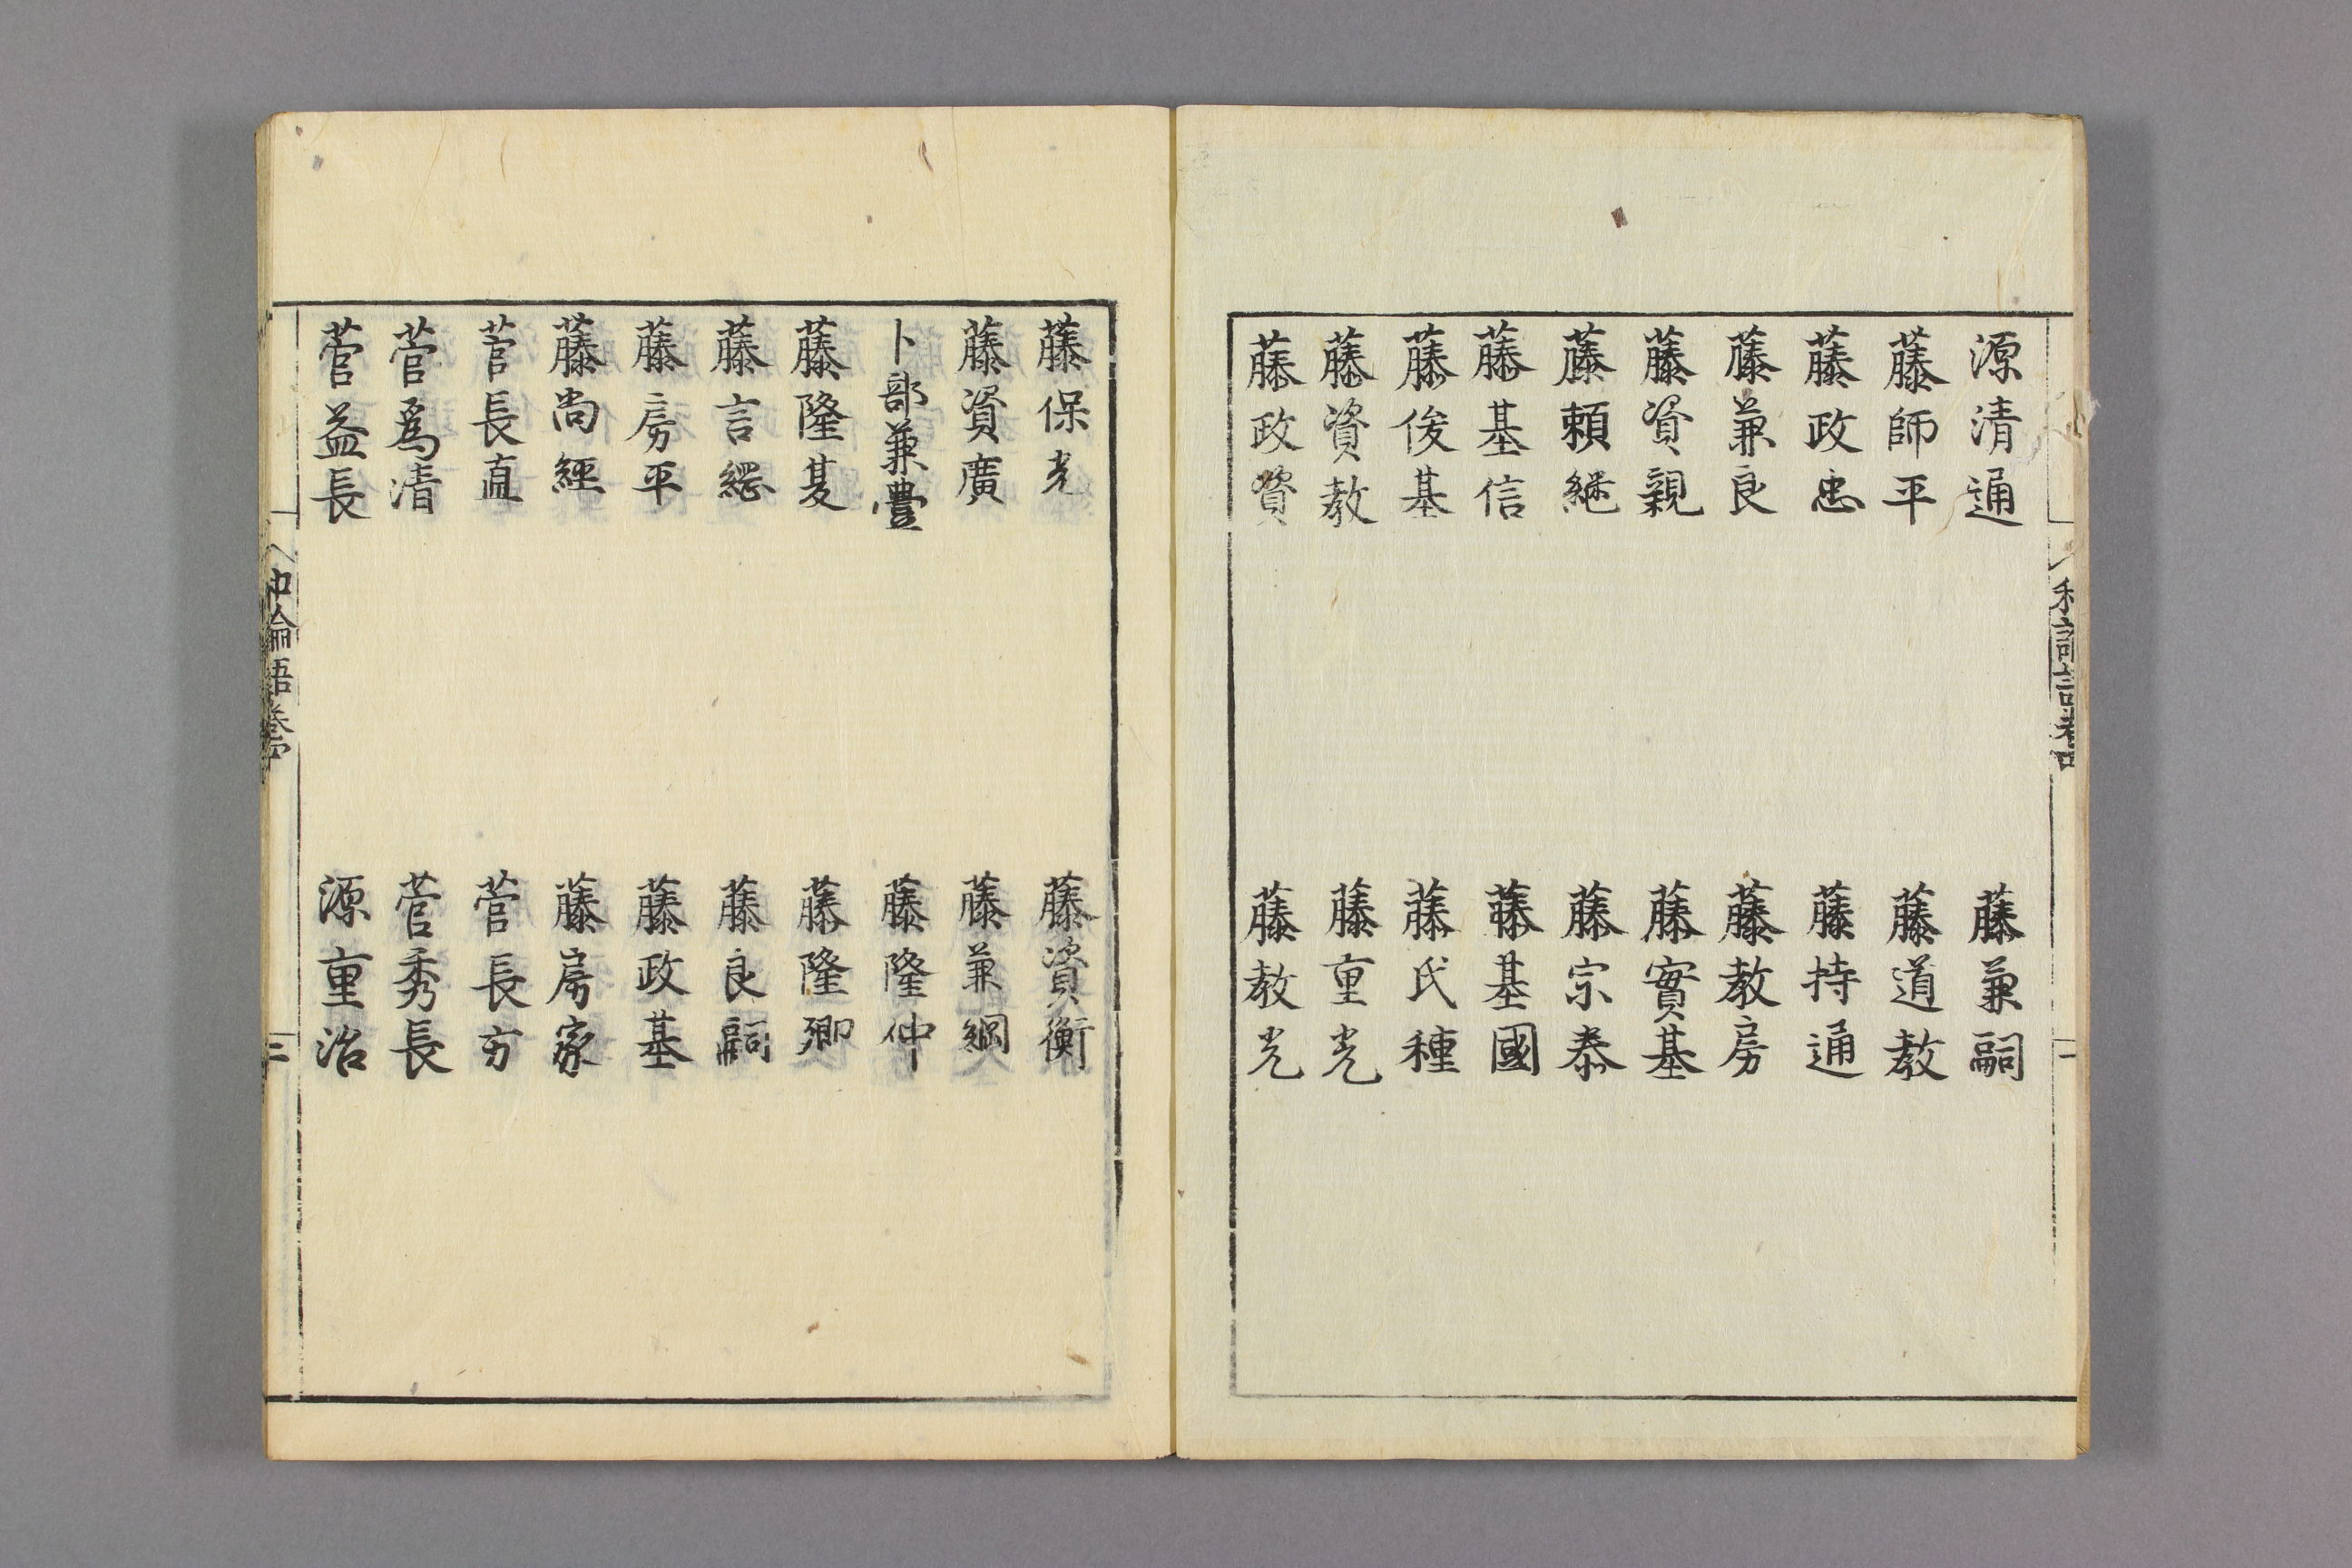 源清通
藤兼嗣
藤師平
藤道教
藤政忠
藤持通
藤兼良
藤教房
藤資親
藤實基
藤頼継
藤宗泰
藤基信
藤基國
藤俊基
藤氏種
藤資教
藤重光
藤政資
藤教光
藤保光
藤資衡
藤資廣
藤兼綱
卜部兼豊
藤隆仲
藤隆
藤隆卿
藤言綱
藤良嗣
藤房平
藤政基
藤尚經
藤房家
菅長直
菅長方
菅爲清
菅秀長
菅益長
源重治
論語巻